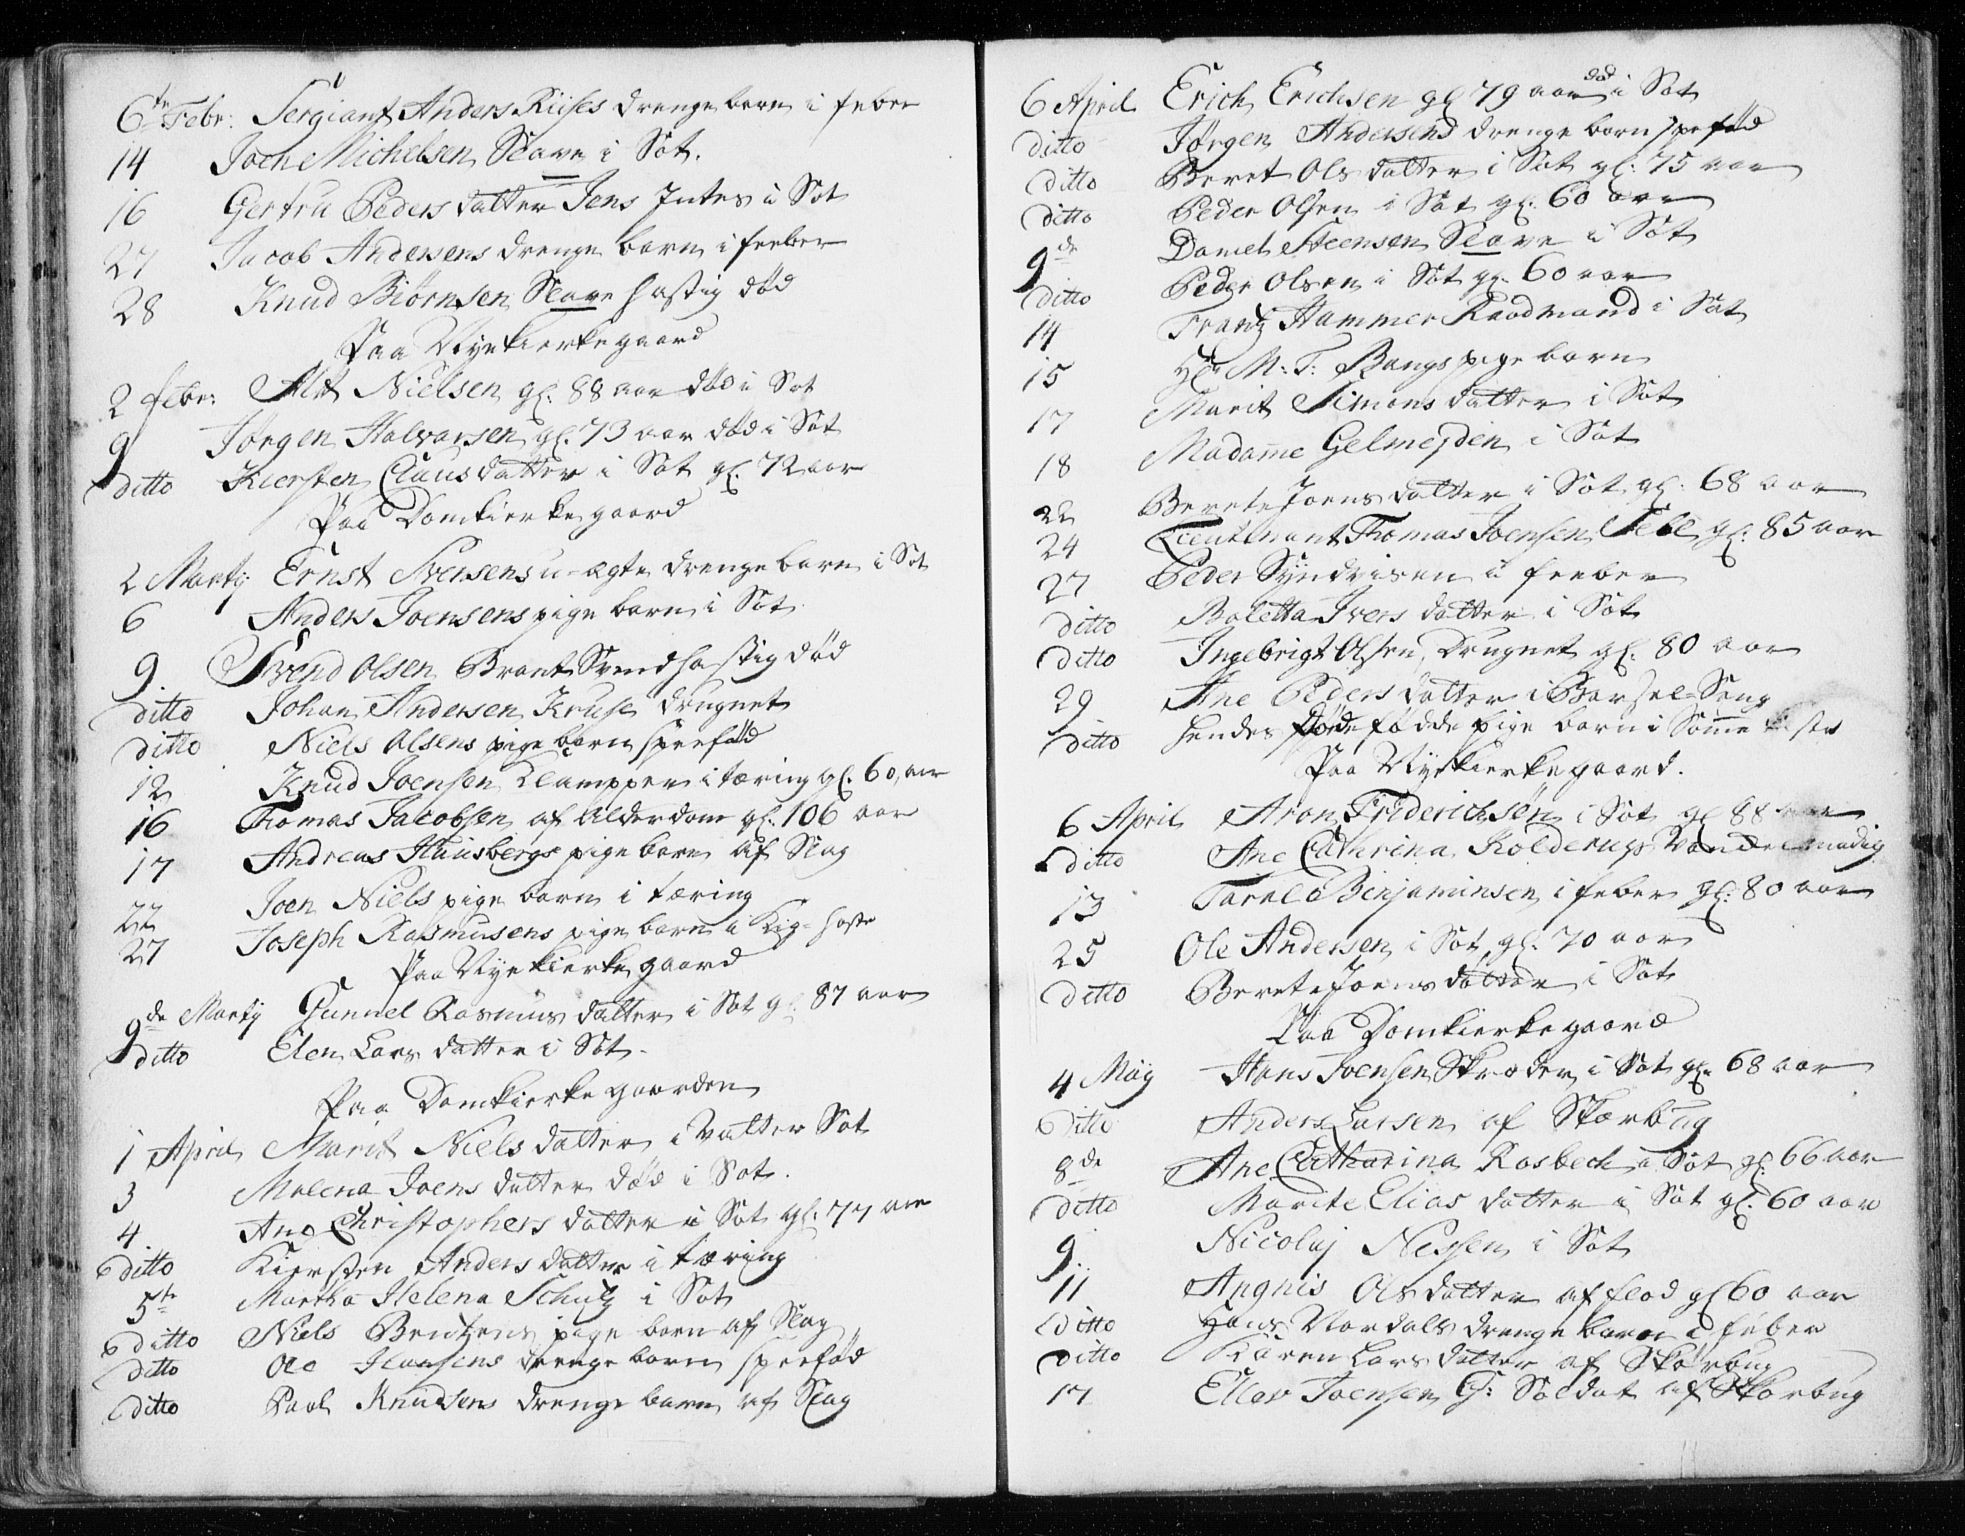 6te Febr: Sergiant Anders Riises drenge barn i feber
14 Joen Michelsen Slave i Sot.
16 Gertru Peders datter Jens Jutes i Sot
27 Jacob Andersens drenge barn i feeber
28 Knud Biørnsen Slave hastig død
Paa Nyekierkegaard
2 febr: Nielsen gl. 88 aar død i Sot
9 Jørgen Halvarsen gl. 73 aar død i Sot
ditto Kiersten Clausdatter i Sot gl. 72 aar
Paa Domkierkegaard
2 Martij Ernst Svensens u-ægte drenge barn i Sot
6 Anders Joensens pige barn i Sot
9. Svend Olsen Brant Svend hastig død
ditto Johan Andersen Kruse drugnet
ditto Niels Olsens pige barn speefød
12 Knud Joensen Klampper i tæring gl. 60 aar
16 Thomas Jacobsen af Alderdom gl. 106 aar
17 Andreas Hausbergs pige barn af Slag
22 Joen Niels pige barn i tæring
27 Joseph Rasmusens pige barn i Kig-hoste
Paa Nyekierkegaard
9de Martij Gunnel Rasmus datter i Sot gl. 87 aar
ditto Elen Lars datter i Sot.
Paa Domkierkegaarden
1 April Marit Niels datter i Vatter Sot
3 Malena Joens datter død i Sot.
4 Ane Christophers datter i Sot gl. 77 aar
ditto Kiersten Anders datter i tæring
5te Martha Helena Schutz i Sot
ditto Niels Bentzens pige barn af Slag
ditto Ole Hansens drenge barn speefød
ditto Paal Knudsens drenge barn af Slag
6 April Erich Erichsen gl 79 aar død i Sot
ditto Jørgen Andersens drenge barn speefød
ditto Beret Ols datter i Sot gl. 75 aar
ditto Peder Olsen i Sot gl. 60 aar
9de Daniel Steensen Slave i Sot
ditto Peder Olsen i Sot gl. 60 aar
14 Frantz Hammer Raadmand i Sot
15 Hr M: T: Bangs pige barn
17 Marit Simons datter i Sot
18 Madame Gelmejden i Sot
22 Berete Joens datter i Sot gl. 68 aar
24 Lieutenant Thomas Joensen gl: 85 aar
27 Peder Syndrisen i feeber
ditto Boletta Ivers datter i Sot
ditto Ingebrigt Olsen, Drugnet gl. 80 aar
29 Ane Peders datter i Barsel Seng
ditto hendes døde fødde pige barn i Somme kiste
Paa Nyekierkegaard.
6 April Aron Friderichsøn i Sot gl 88 aar
ditto Ane Cathrina Kolderups Vandermadig
13 Tarald Benjaminsen i feber gl: 80 aar
25 Ole Andersen i Sot gl. 70 aar
ditto Berete Joens datter i Sot
Paa Domkierkegaard
4 Maij Hans Joensen Skræder i Sot gl. 68 aar
ditto Anders Larsen af Skørbug
8de Ane Catharina Rosbech i Sot gl. 66 aar
ditto Marite Elias datter i Sot gl. 60 aar
9.. Nicolaj Nessen i Sot
11 Angnis Ols datter af flod gl 60 aar
ditto Hans Nordals drenge barn i feber
ditto Karen Lars datter af Skørbug
17 Ellev Joensen G: Soldat af Skørbug